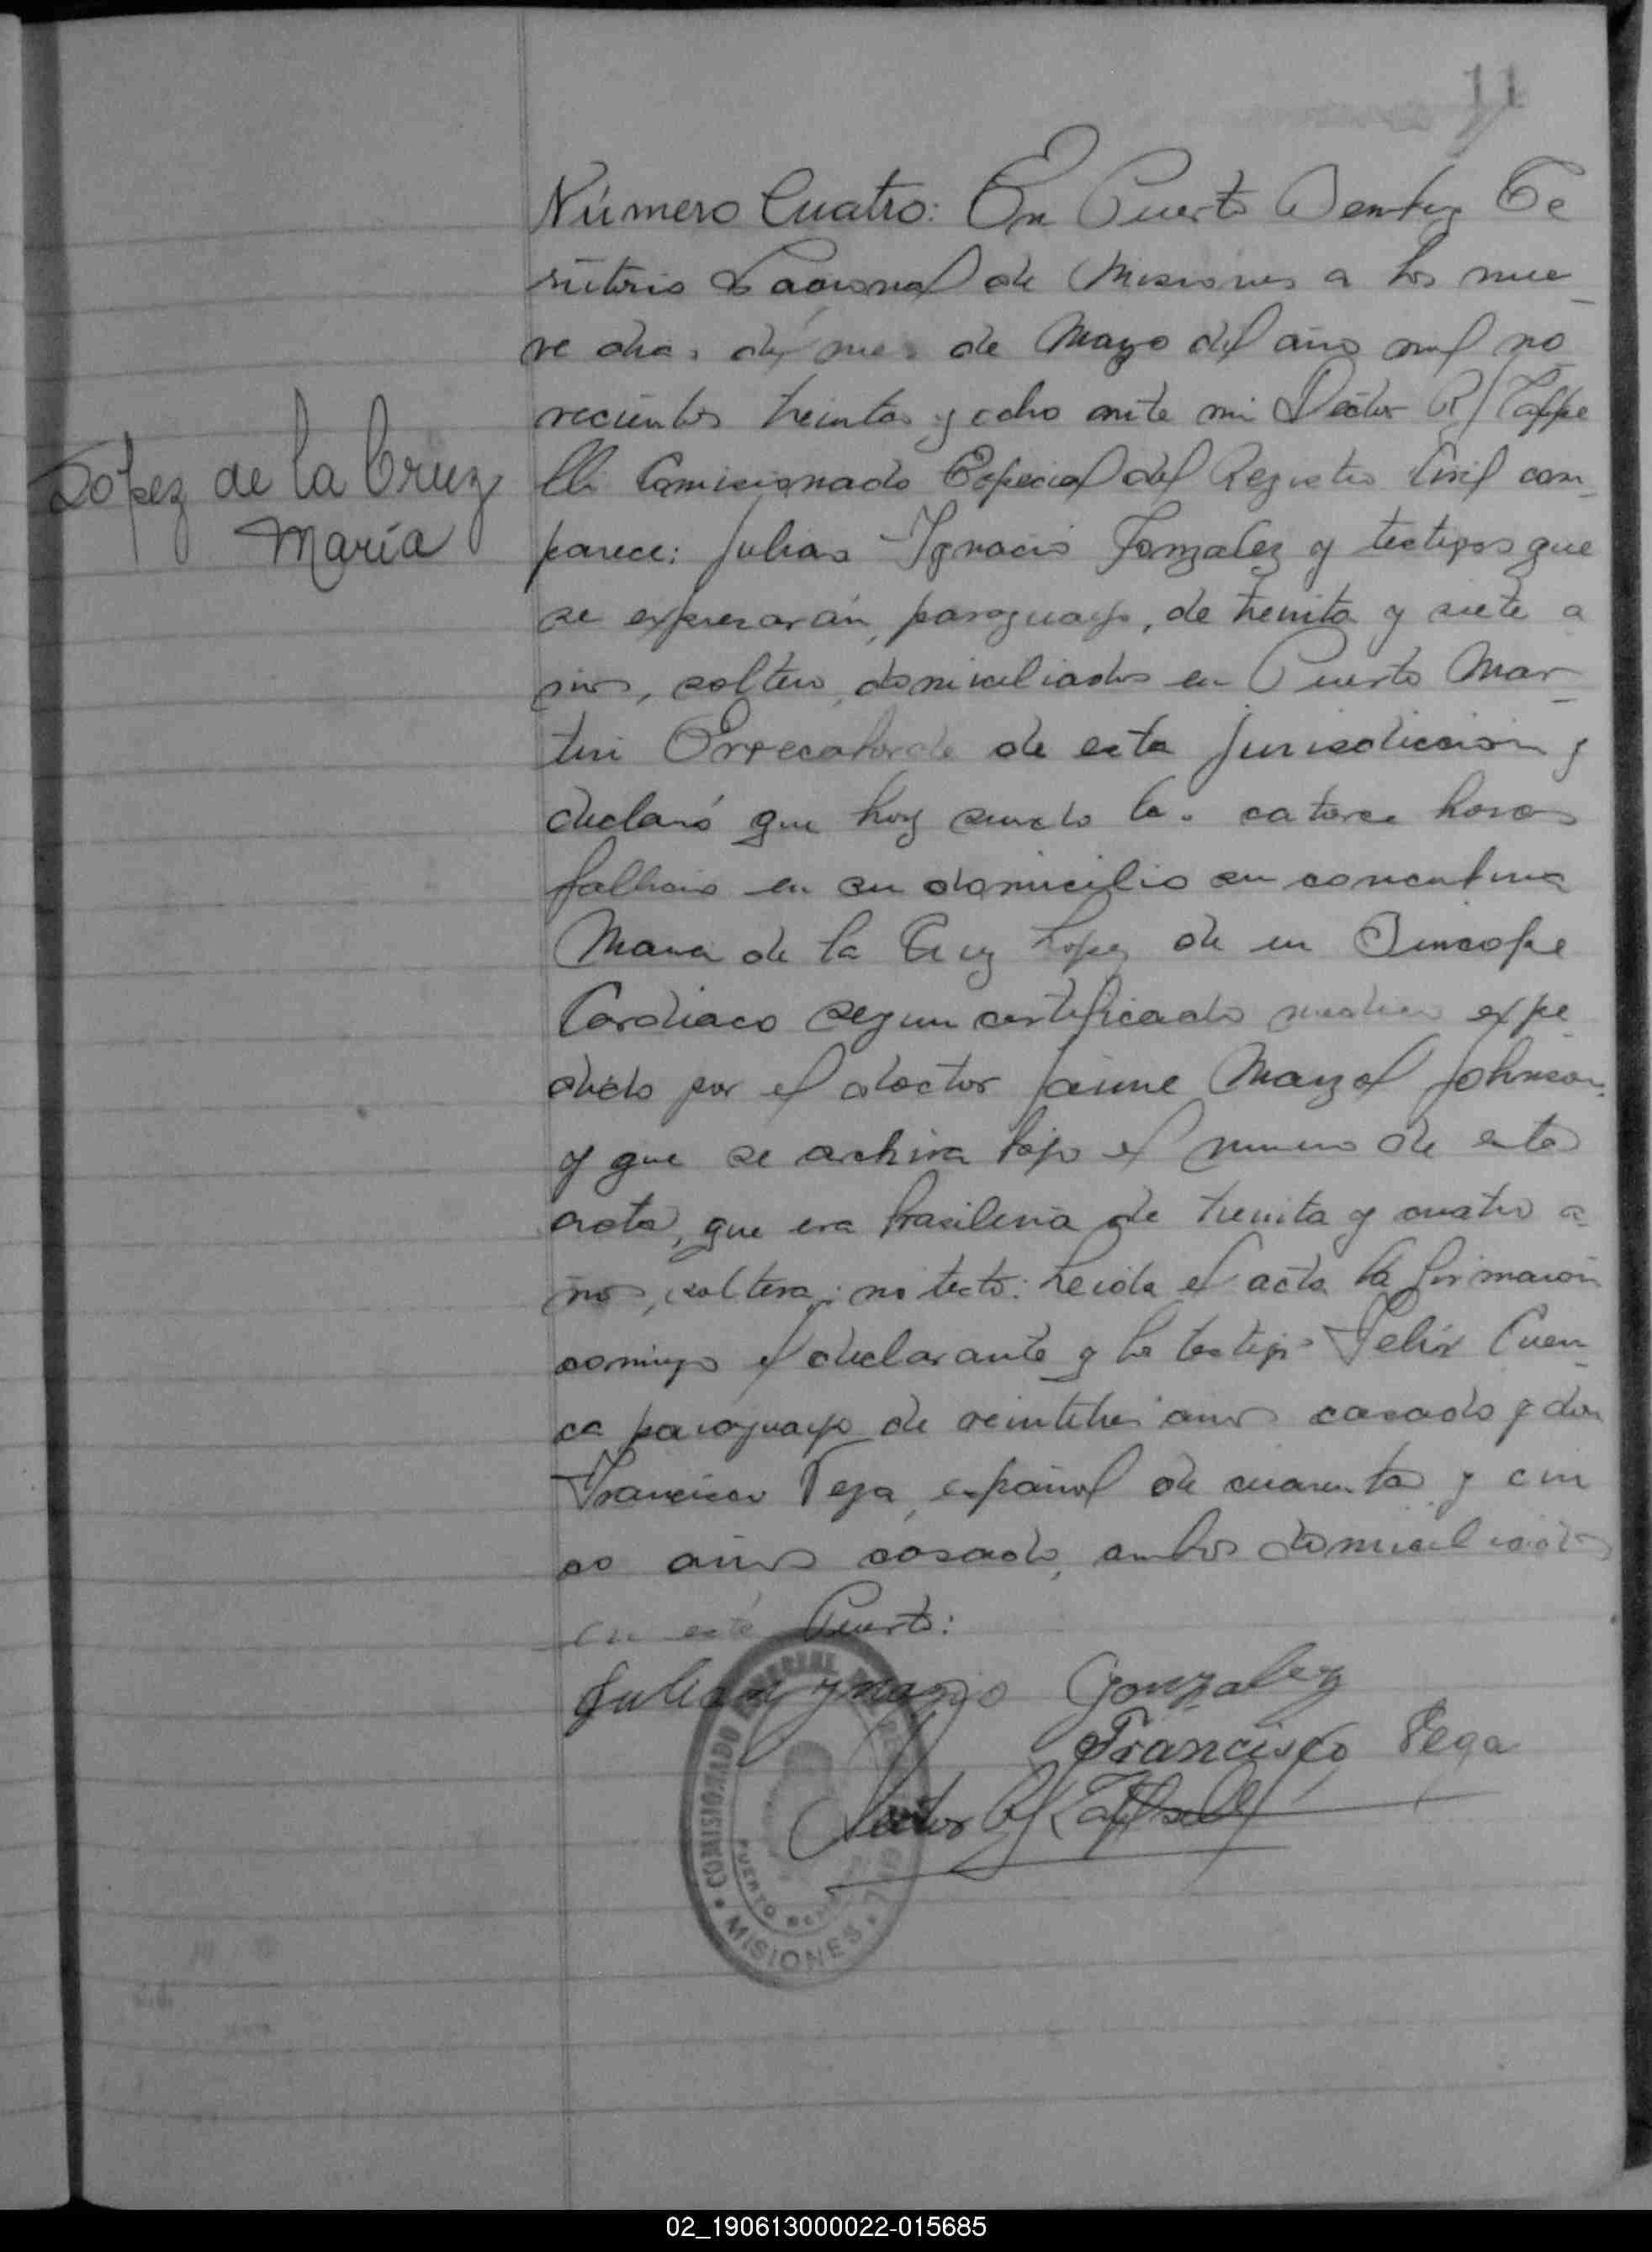 11
Número Cuatro: En Puerto Bemberg Te
rritorio Nacional de Misiones a los nue
ve dias del mes de Mayo del año mil no
vecientos treinta y ocho ante mi Victor R
lli Comisionado Especial del Registro Civil com
López de la Cruz
María
parece: Julian Ignacio Gonzalez y testigos que
se expresarán, paraguayo, de treinta y siete a
ños, soltero, domiciliados en Puerto Mar
tin de esta jurisdiccion y
declaró que hoy siendo las catorce horas
fallecio en su domicilio su concubina
Maria de la Cruz Lopez de un Sincope
Cardiaco segun certificado medico expe
dido por el doctor Jaime Johnson
y que se archiva bajo el numero de esta
acta, que era brasileña de treinta y cuatro a
ños, soltera; no testó: Leida el acta la firmaron
conmigo el declarante y los testigos Felix Cuen
ca paraguayo de veintitres años casado y don
Francisco Vega, español de cuarenta y cin
co años casado, ambos domiciliados
en este Puerto:
Julian Ygnacio Gonzalez
Francisco Vega
Victor R
COMISIONADO ESPECIAL DEL REGISTRO CIVIL
PUERTO BEMBERG
MISIONES
02_190613000022-015685